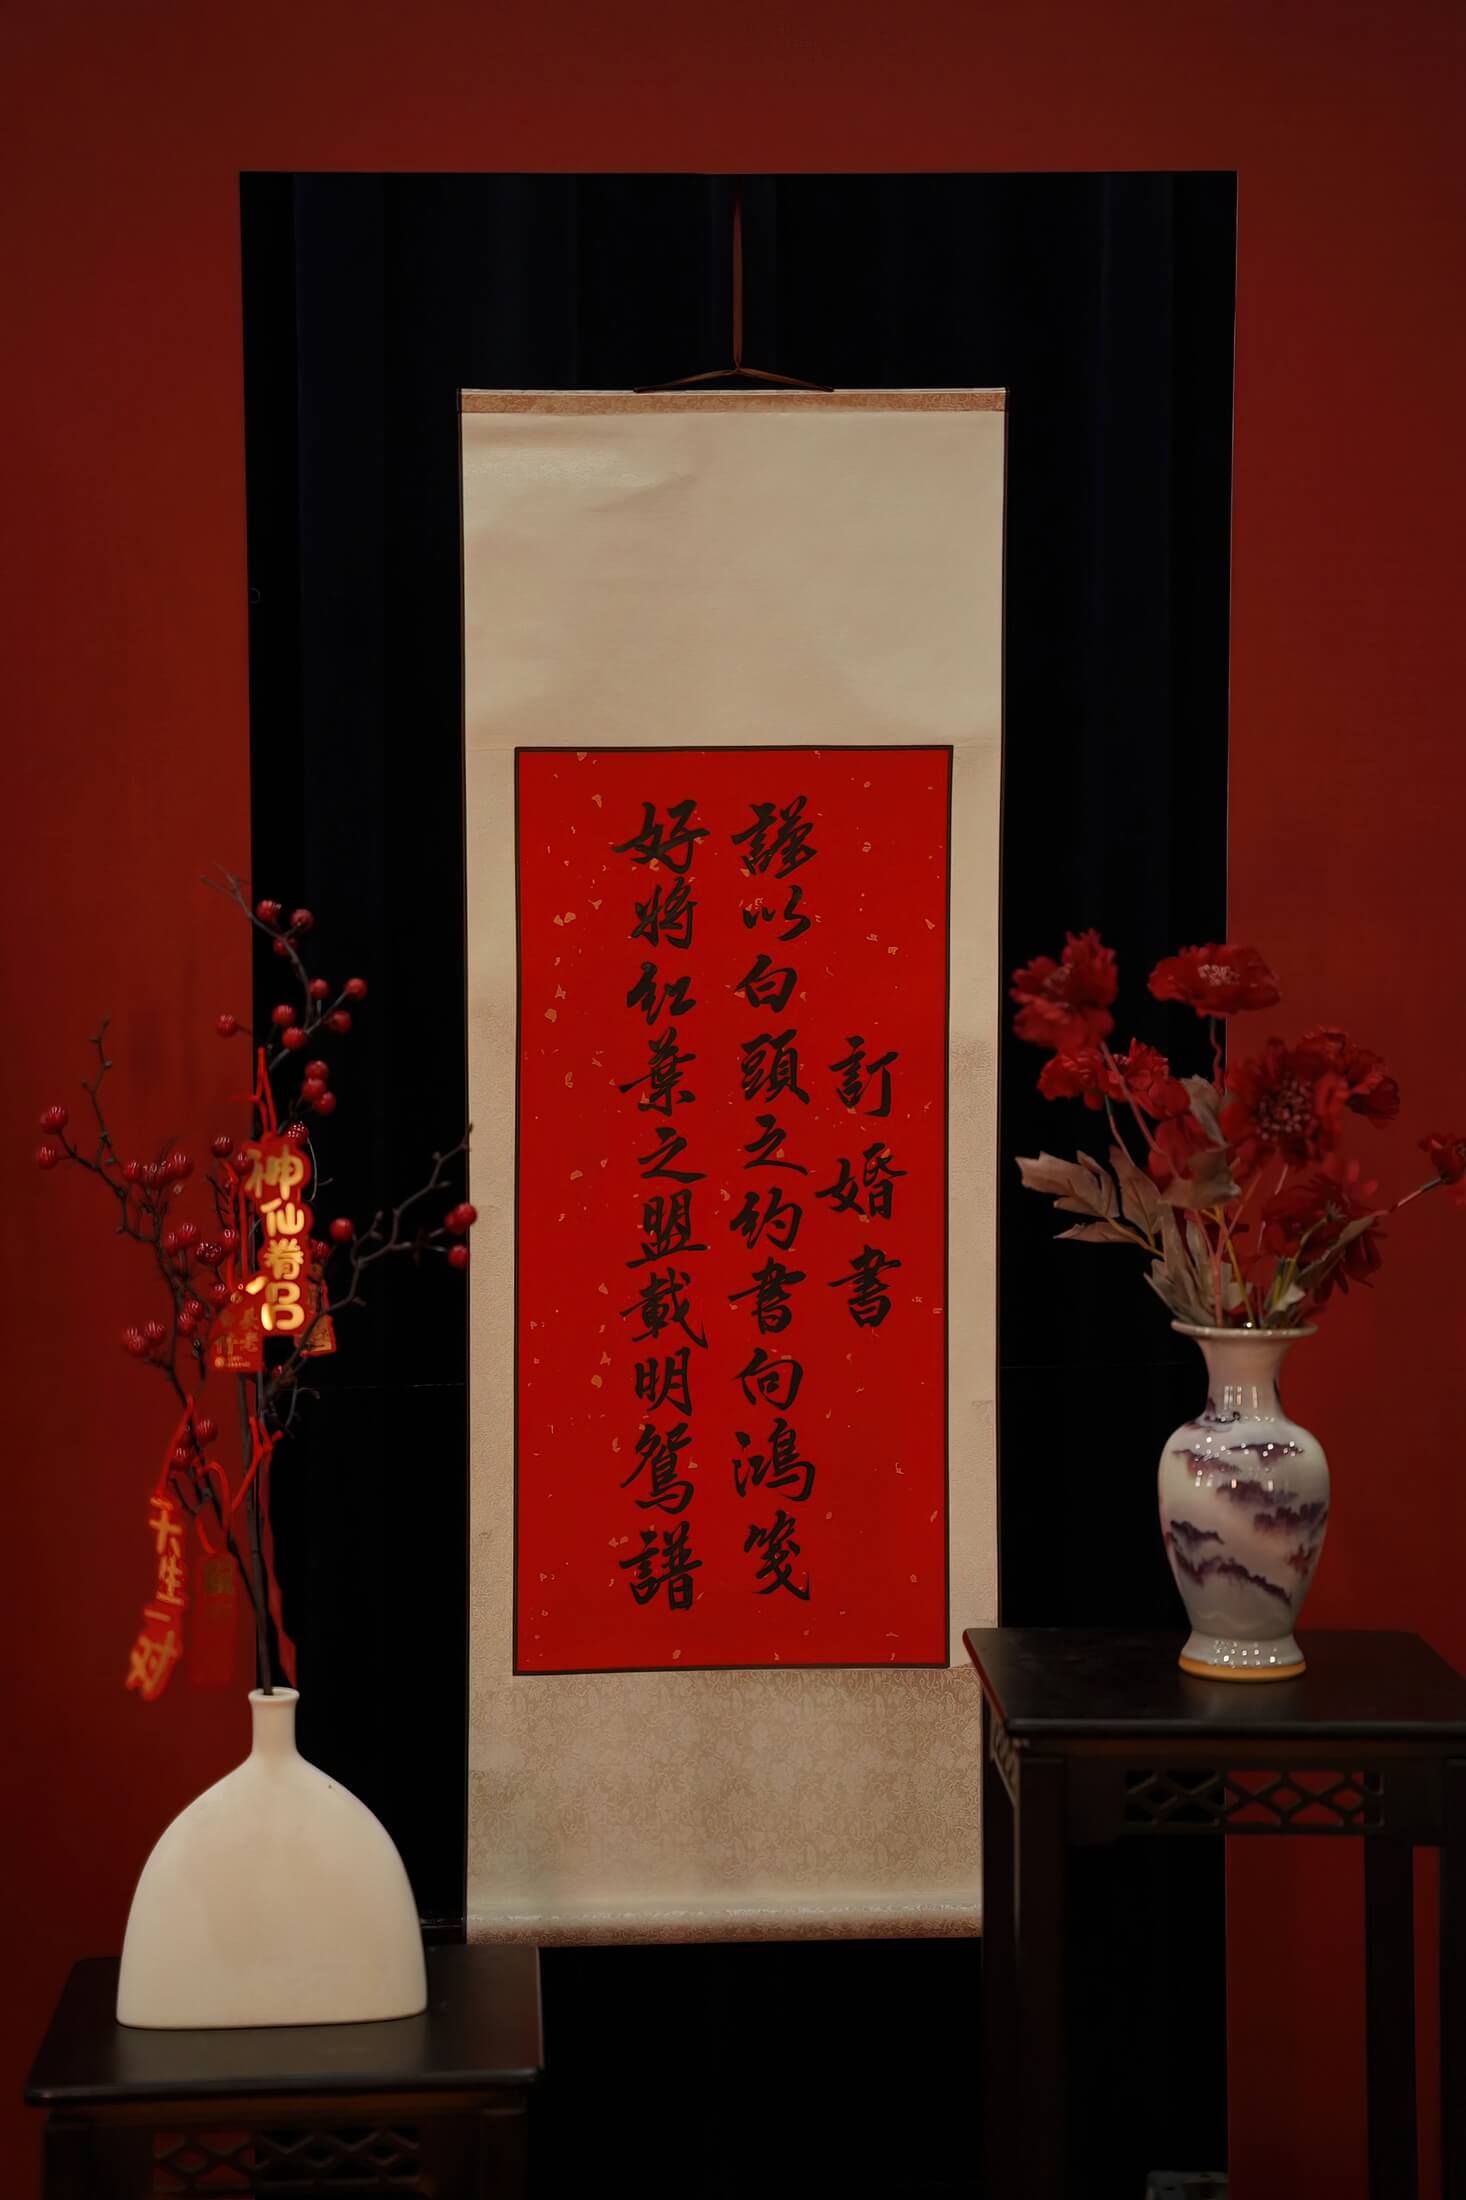 訂婚書
謹以白頭之約書向鴻箋
好將紅葉之盟載明鴛譜
神仙眷侶
天生一对